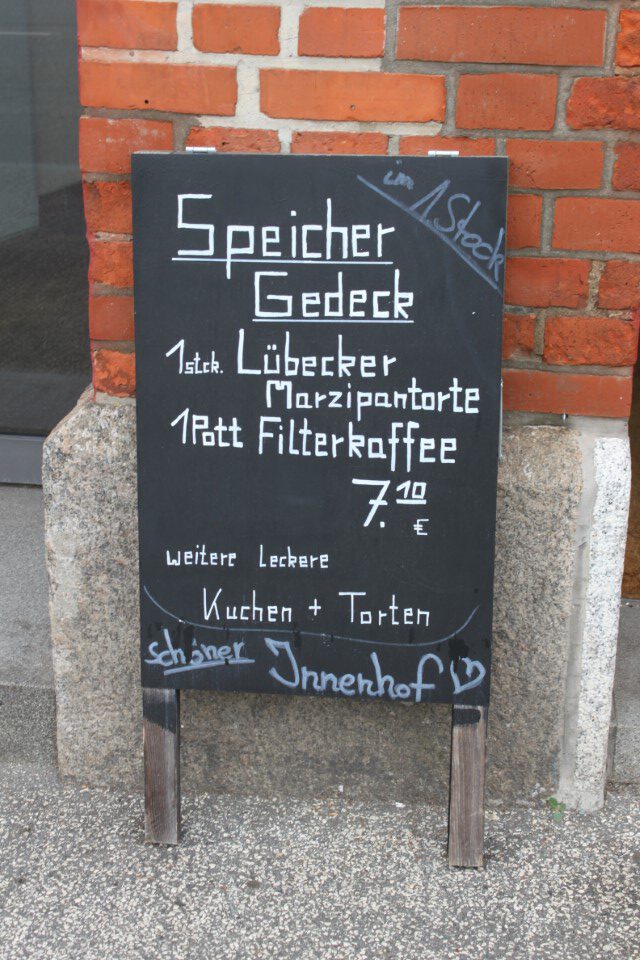 im 1. Stock
Speicher
Gedeck
1 stck. Lübecker
Marzipantorte
1 Pott Filterkaffee
7.10 €
weitere Leckere
Kuchen + Torten
schöner Innenhof